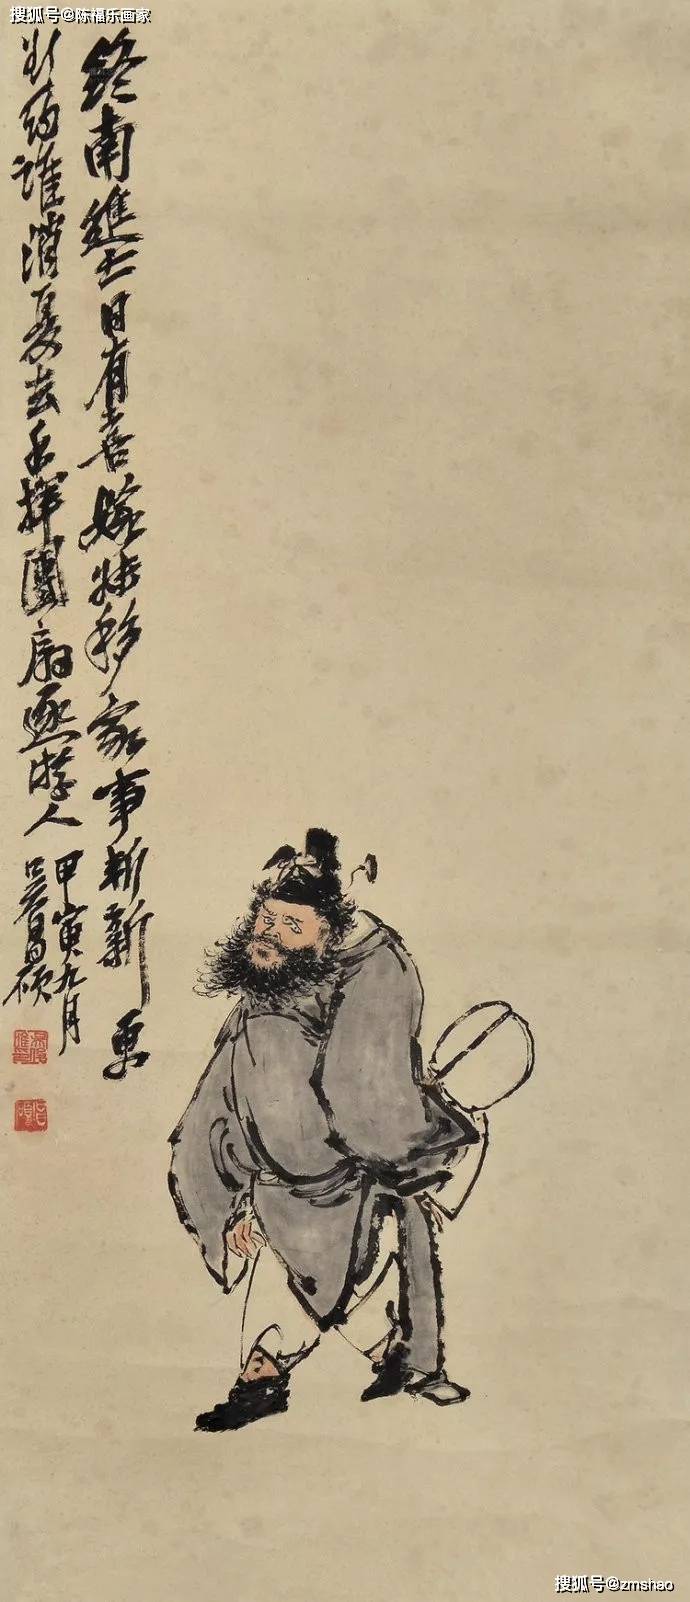 搜狐号@陈福乐画家
终南进士日有喜嫁妹移家事斩新更
谁消夏去手挥团扇逐游人
甲寅九月
吴昌硕
搜狐号@zmshao